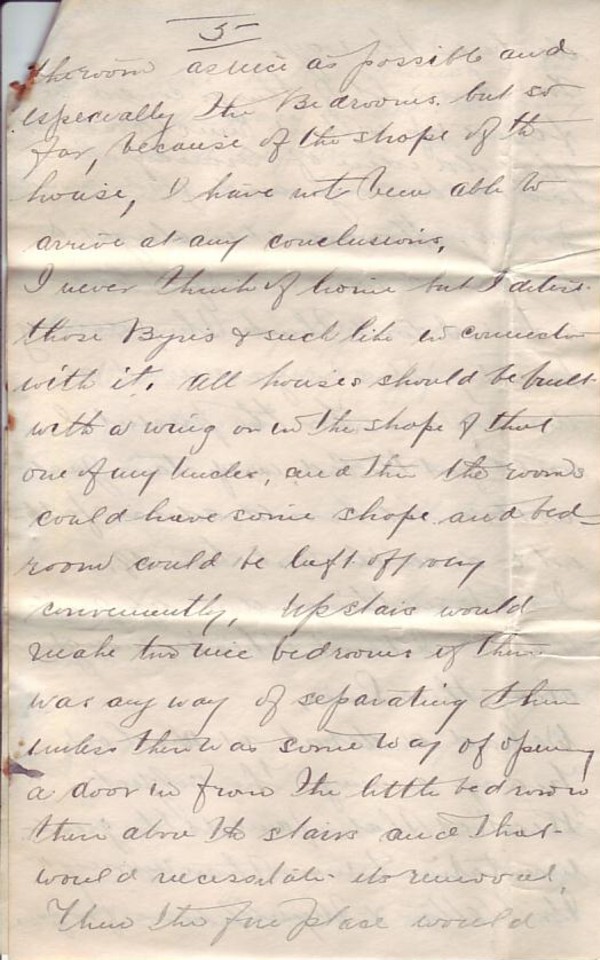 5
the room as nice as possible and
especially the Bedrooms. but so
far, because of the shape of th
house, I have not been able to
arrive at any conclusions.
I never think of home but I
those Byres & such like in connection
with it. All houses should be built
with a wing or in the shape of that
one of my Uncles, and then the rooms
could have some shape and bed-
room could be left off very
conveniently. Upstairs would
make two nice bedrooms if there
was any way of separating them
unless there was some way of opening
a door in from the little bedroom
then above the stairs and that
would necessitate its removal.
Then the fire place would